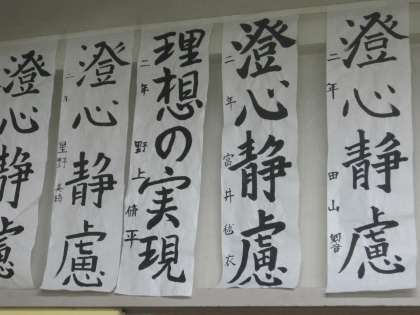 澄心静慮
二年 田山響
澄心静慮
二年 富井毬衣
理想の実現
二年 野上脩平
澄心静慮
二年 星野
澄心静慮